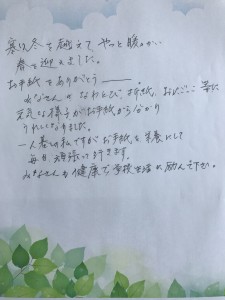 寒い冬を越えて やっと暖かい
春を迎えました。
お手紙をありがとう――。
みなさんの なわとび、お手紙、おにごっこ 等に
元気な様子がお手紙から分かり
うれしくなりました。
一人暮しの私ですが お手紙を栄養にして
毎日 頑張って行きます。
みなさんも健康で 学校生活に励んで下さい。